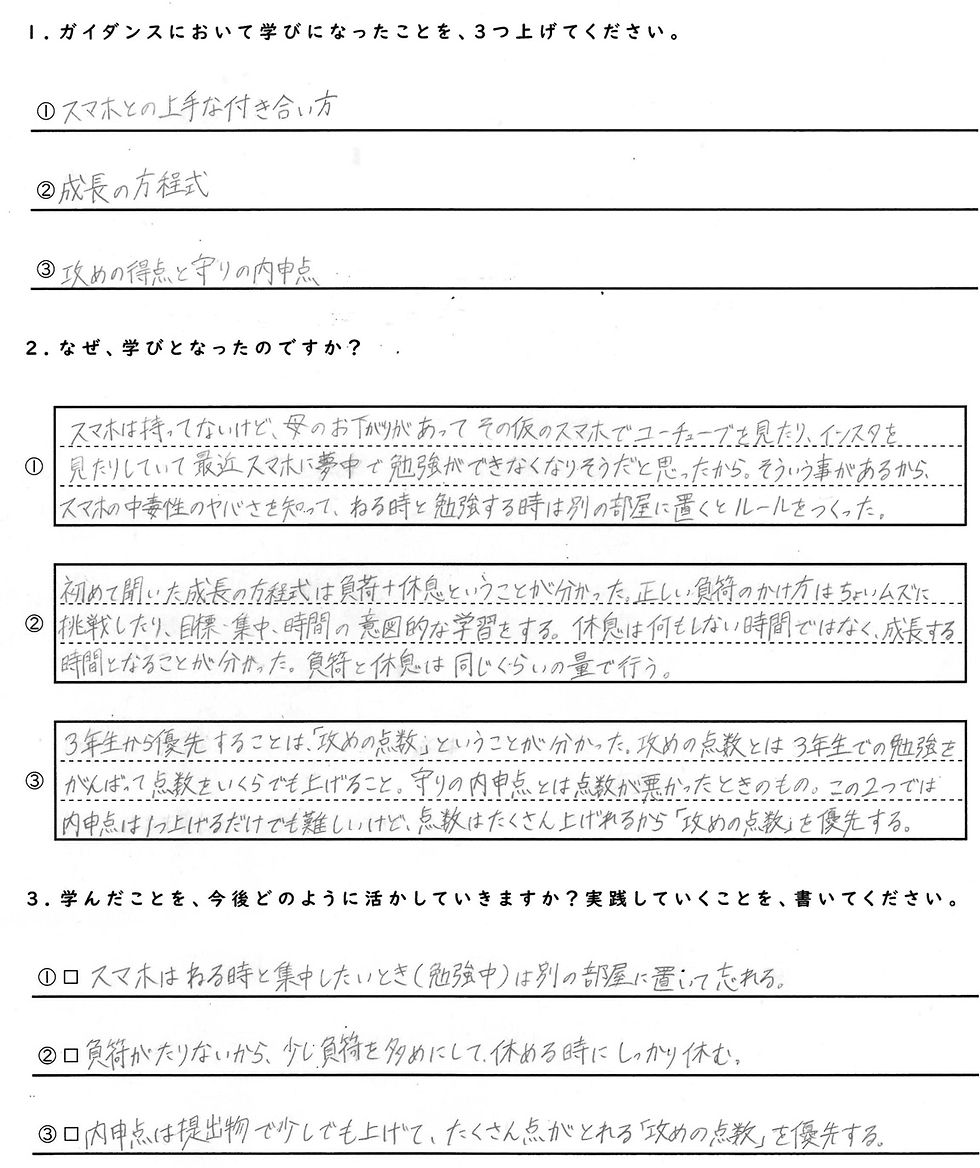 1. ガイダンスにおいて学びになったことを、3つ上げてください。
① スマホとの上手な付き合い方
② 成長の方程式
③ 攻めの得点と守りの内申点
2. なぜ、学びとなったのですか？
スマホは持ってないけど、母のお下がりがあって その仮のスマホでユーチューブを見たり、インスタを
① 見たりしていて最近スマホに夢中で勉強ができなくなりそうだと思ったから。そういう事があるから、
スマホの中毒性のヤバさを知って、ねる時と勉強する時は別の部屋に置くとルールをつくった。
初めて聞いた成長の方程式は負荷+休息ということが分かった。正しい負符のかけ方はちょいムズに
② 挑戦したり、目標・集中・時間の意図的な学習をする。休息は何もしない時間ではなく、成長する
時間となることが分かった。負符と休息は同じくらいの量で行う。
3年生から優先することは、「攻めの点数」ということが分かった。攻めの点数とは3年生での勉強を
③ がんばって点数をいくらでも上げること。守りの内申点とは点数が悪かったときのもの。この2つでは
内申点は1つ上げるだけでも難しいけど、点数はたくさん上げれるから「攻めの点数」を優先する。
3. 学んだことを、今後どのように活かしていきますか？実践していくことを、書いてください。
① □ スマホはねる時と集中したいとき(勉強中)は別の部屋に置いて忘れる。
② □ 負符がたりないから、少し負符を多めにして、休める時にしっかり休む。
③ □ 内申点は提出物で少しでも上げて、たくさん点がとれる「攻めの点数」を優先する。